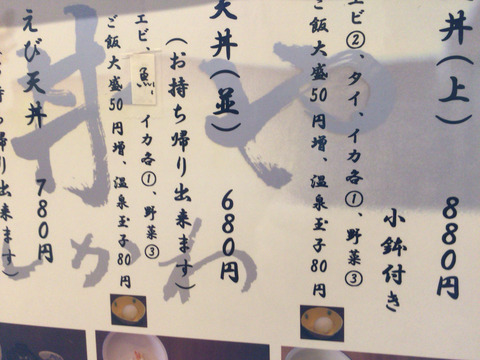 丼(上) 880円
小鉢付き
エビ②、タイ、イカ各①、野菜③
ご飯大盛50円増、温泉玉子80円
天丼(並) 680円
(お持ち帰り出来ます)
エビ、魚、イカ各①、野菜③
ご飯大盛50円増、温泉玉子80円
えび天丼 780円
持ち帰り出来ます)